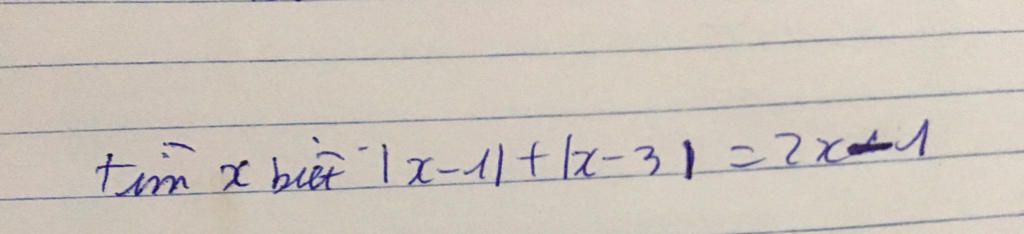 tìm x biết |x-1|+|x-3|=2x-1